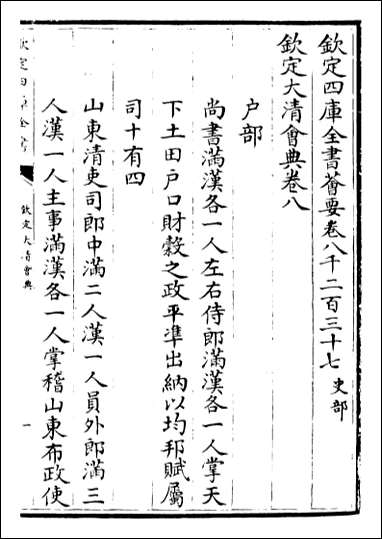 欽定四庫全書薈要卷八千二百三十七 史部
欽定大清會典卷八
户部
尚書滿漢各一人左右侍郎滿漢各一人掌天
下土田户口財穀之政平準出納以均邦賦屬
司十有四
山東清吏司郎中滿二人漢一人員外郎滿三
人漢一人主事滿漢各一人掌稽山東布政使
欽定四庫全書
欽定大清會典
一